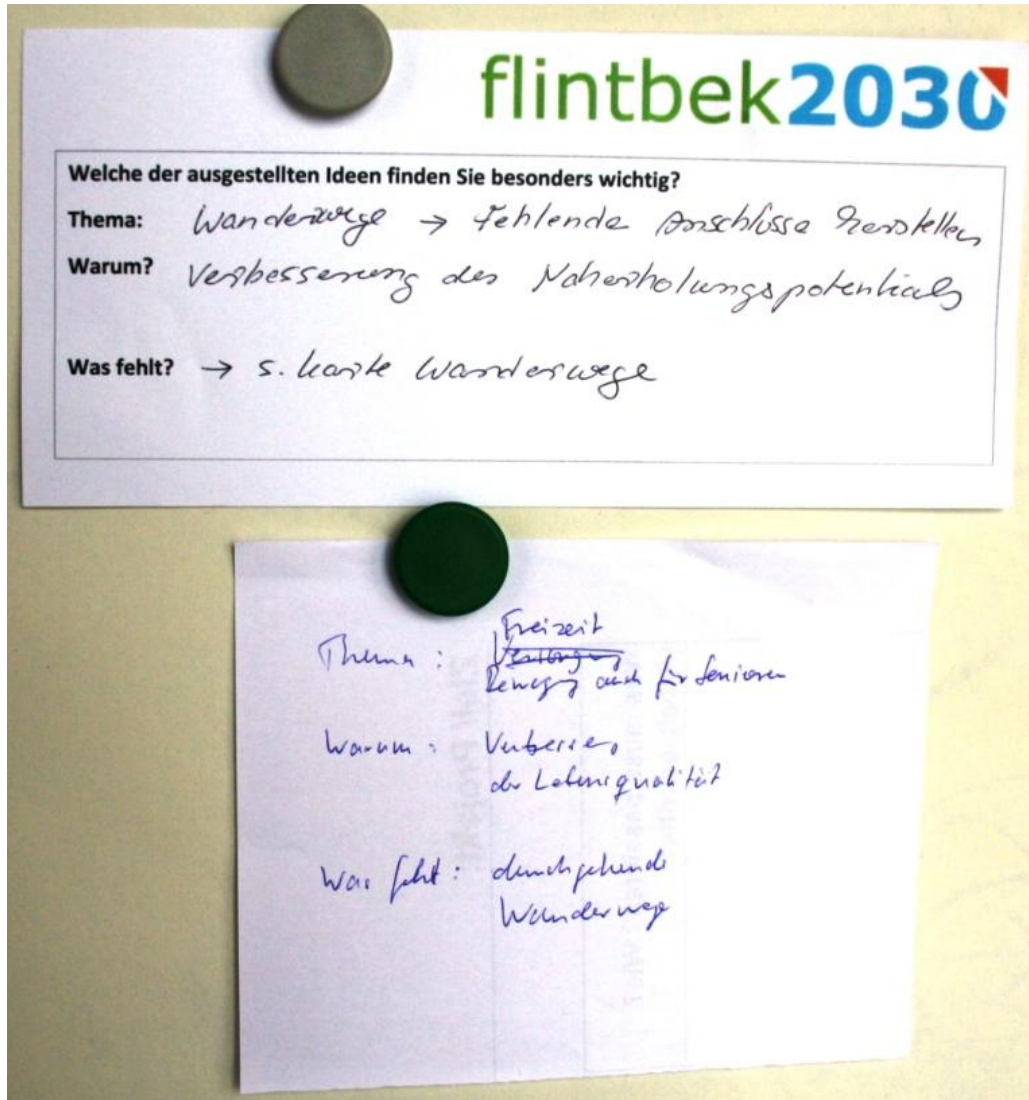 flintbek2030
Welche der ausgestellten Ideen finden Sie besonders wichtig?
Thema: Wanderwege → Fehlende Anschlüsse herstellen
Warum? Verbesserung des Naherholungspotentials
Was fehlt? → s. Karte Wanderwege
Freizeit
Thema : Versorgung
Bewegung auch für Senioren
Warum : Verbesserung
der Lebensqualität
Was fehlt : durchgehende
Wanderwege